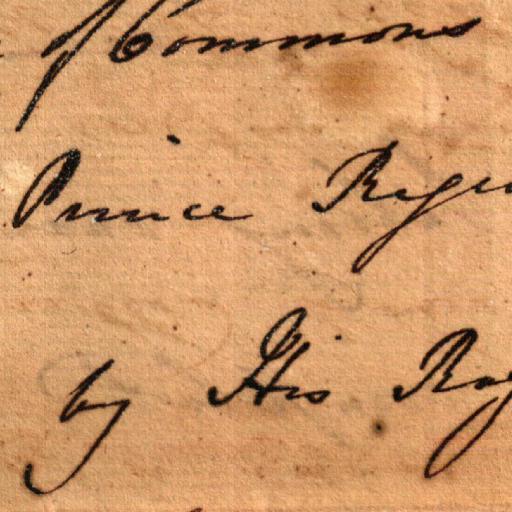 of Commons
Prince Rege
by His Ro